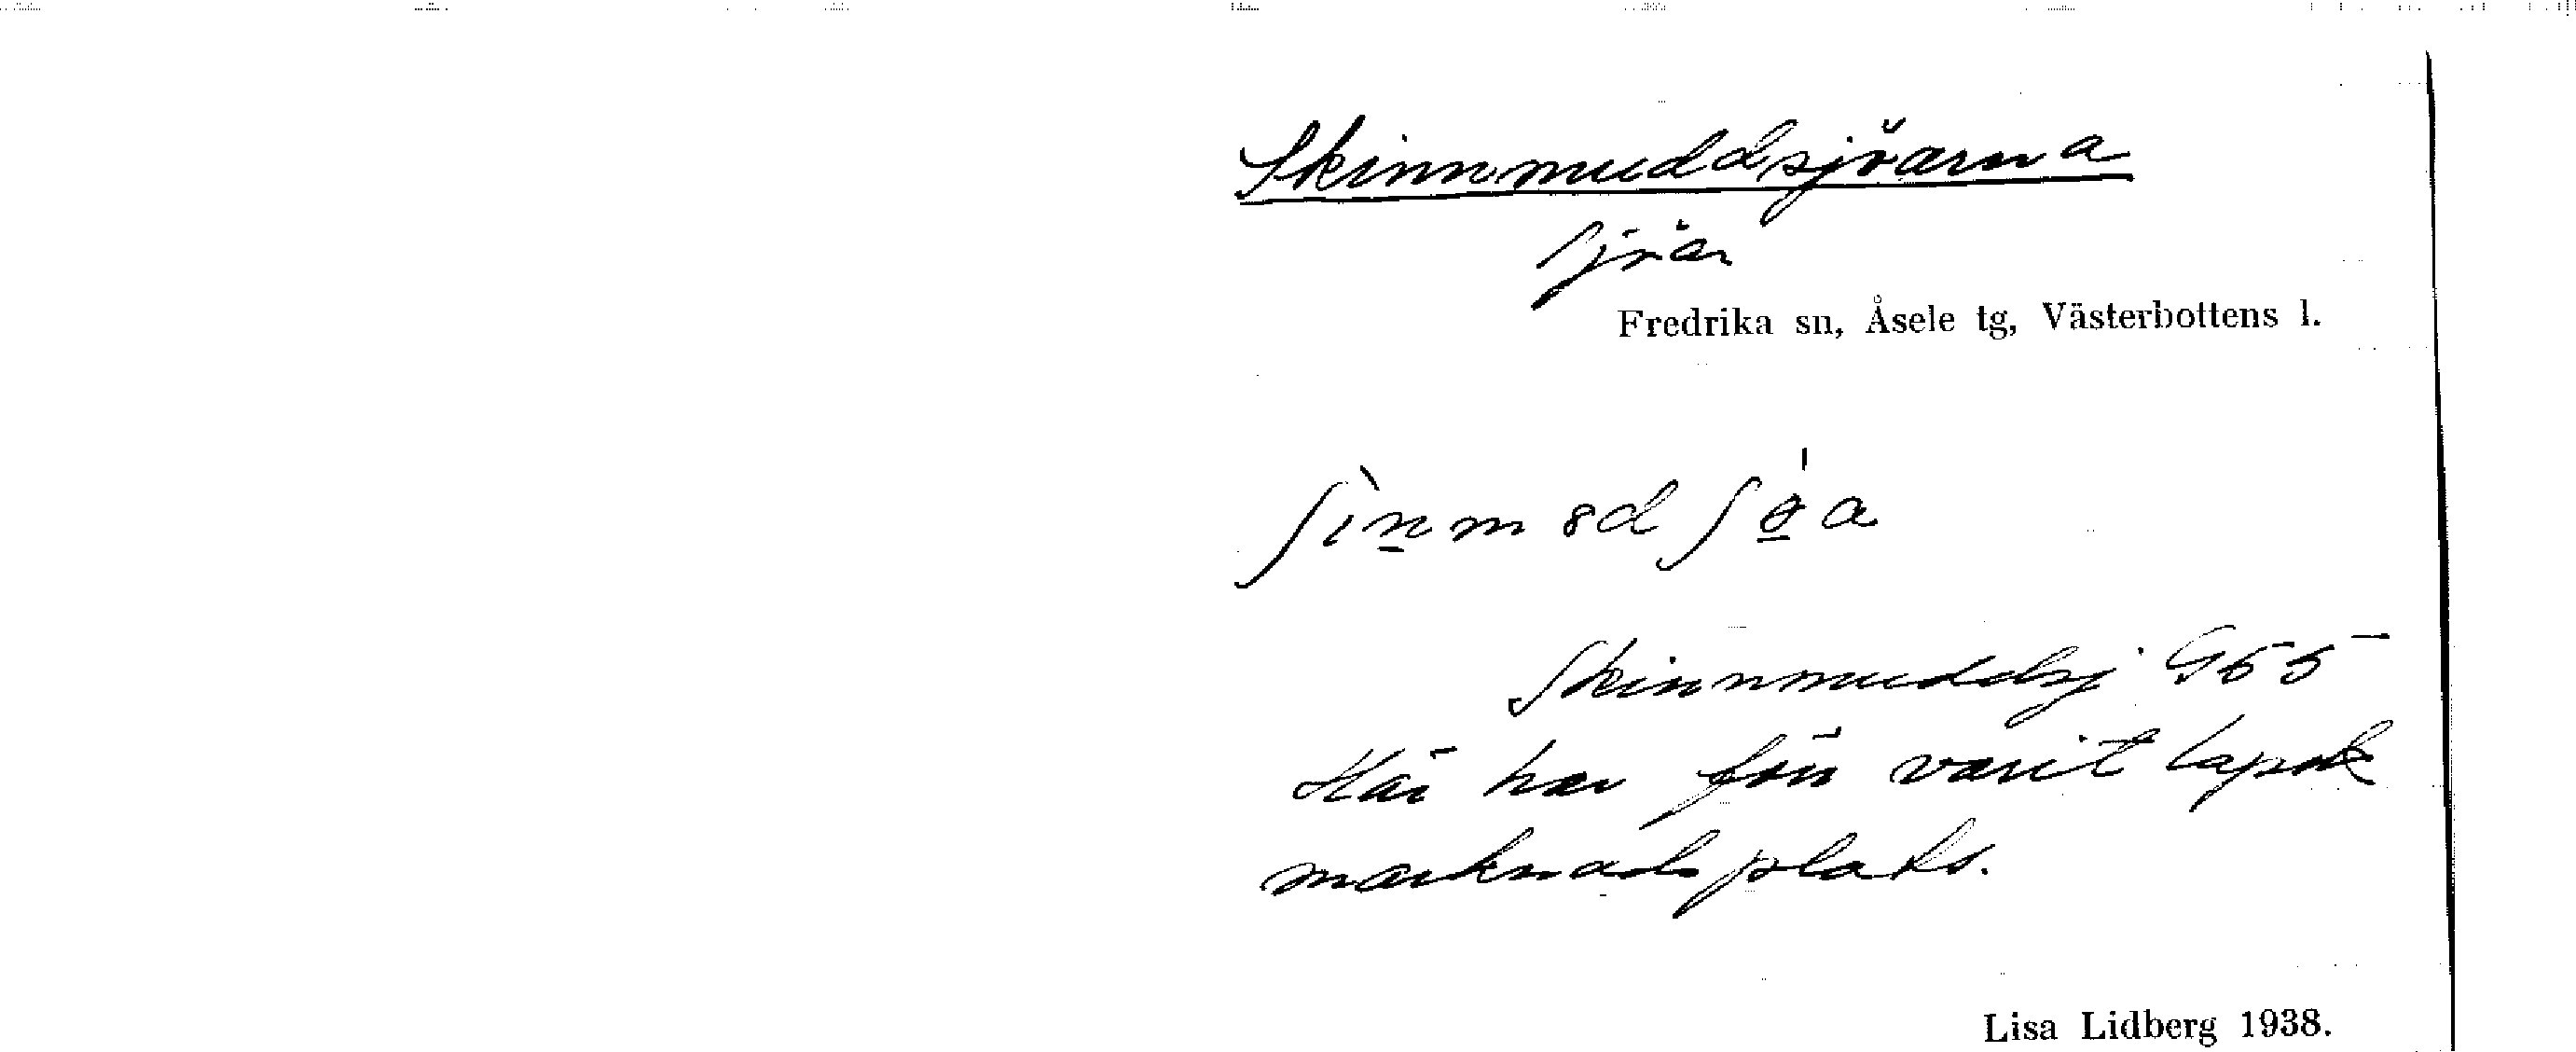 Skinnmuddsjöarna
sjöar
Fredrika sn, Åsele tg, Västerbottens l.
Skinnmuddsj G55
Här har förr varit lapsk
marknadsplats.
Lisa Lidberg 1938.